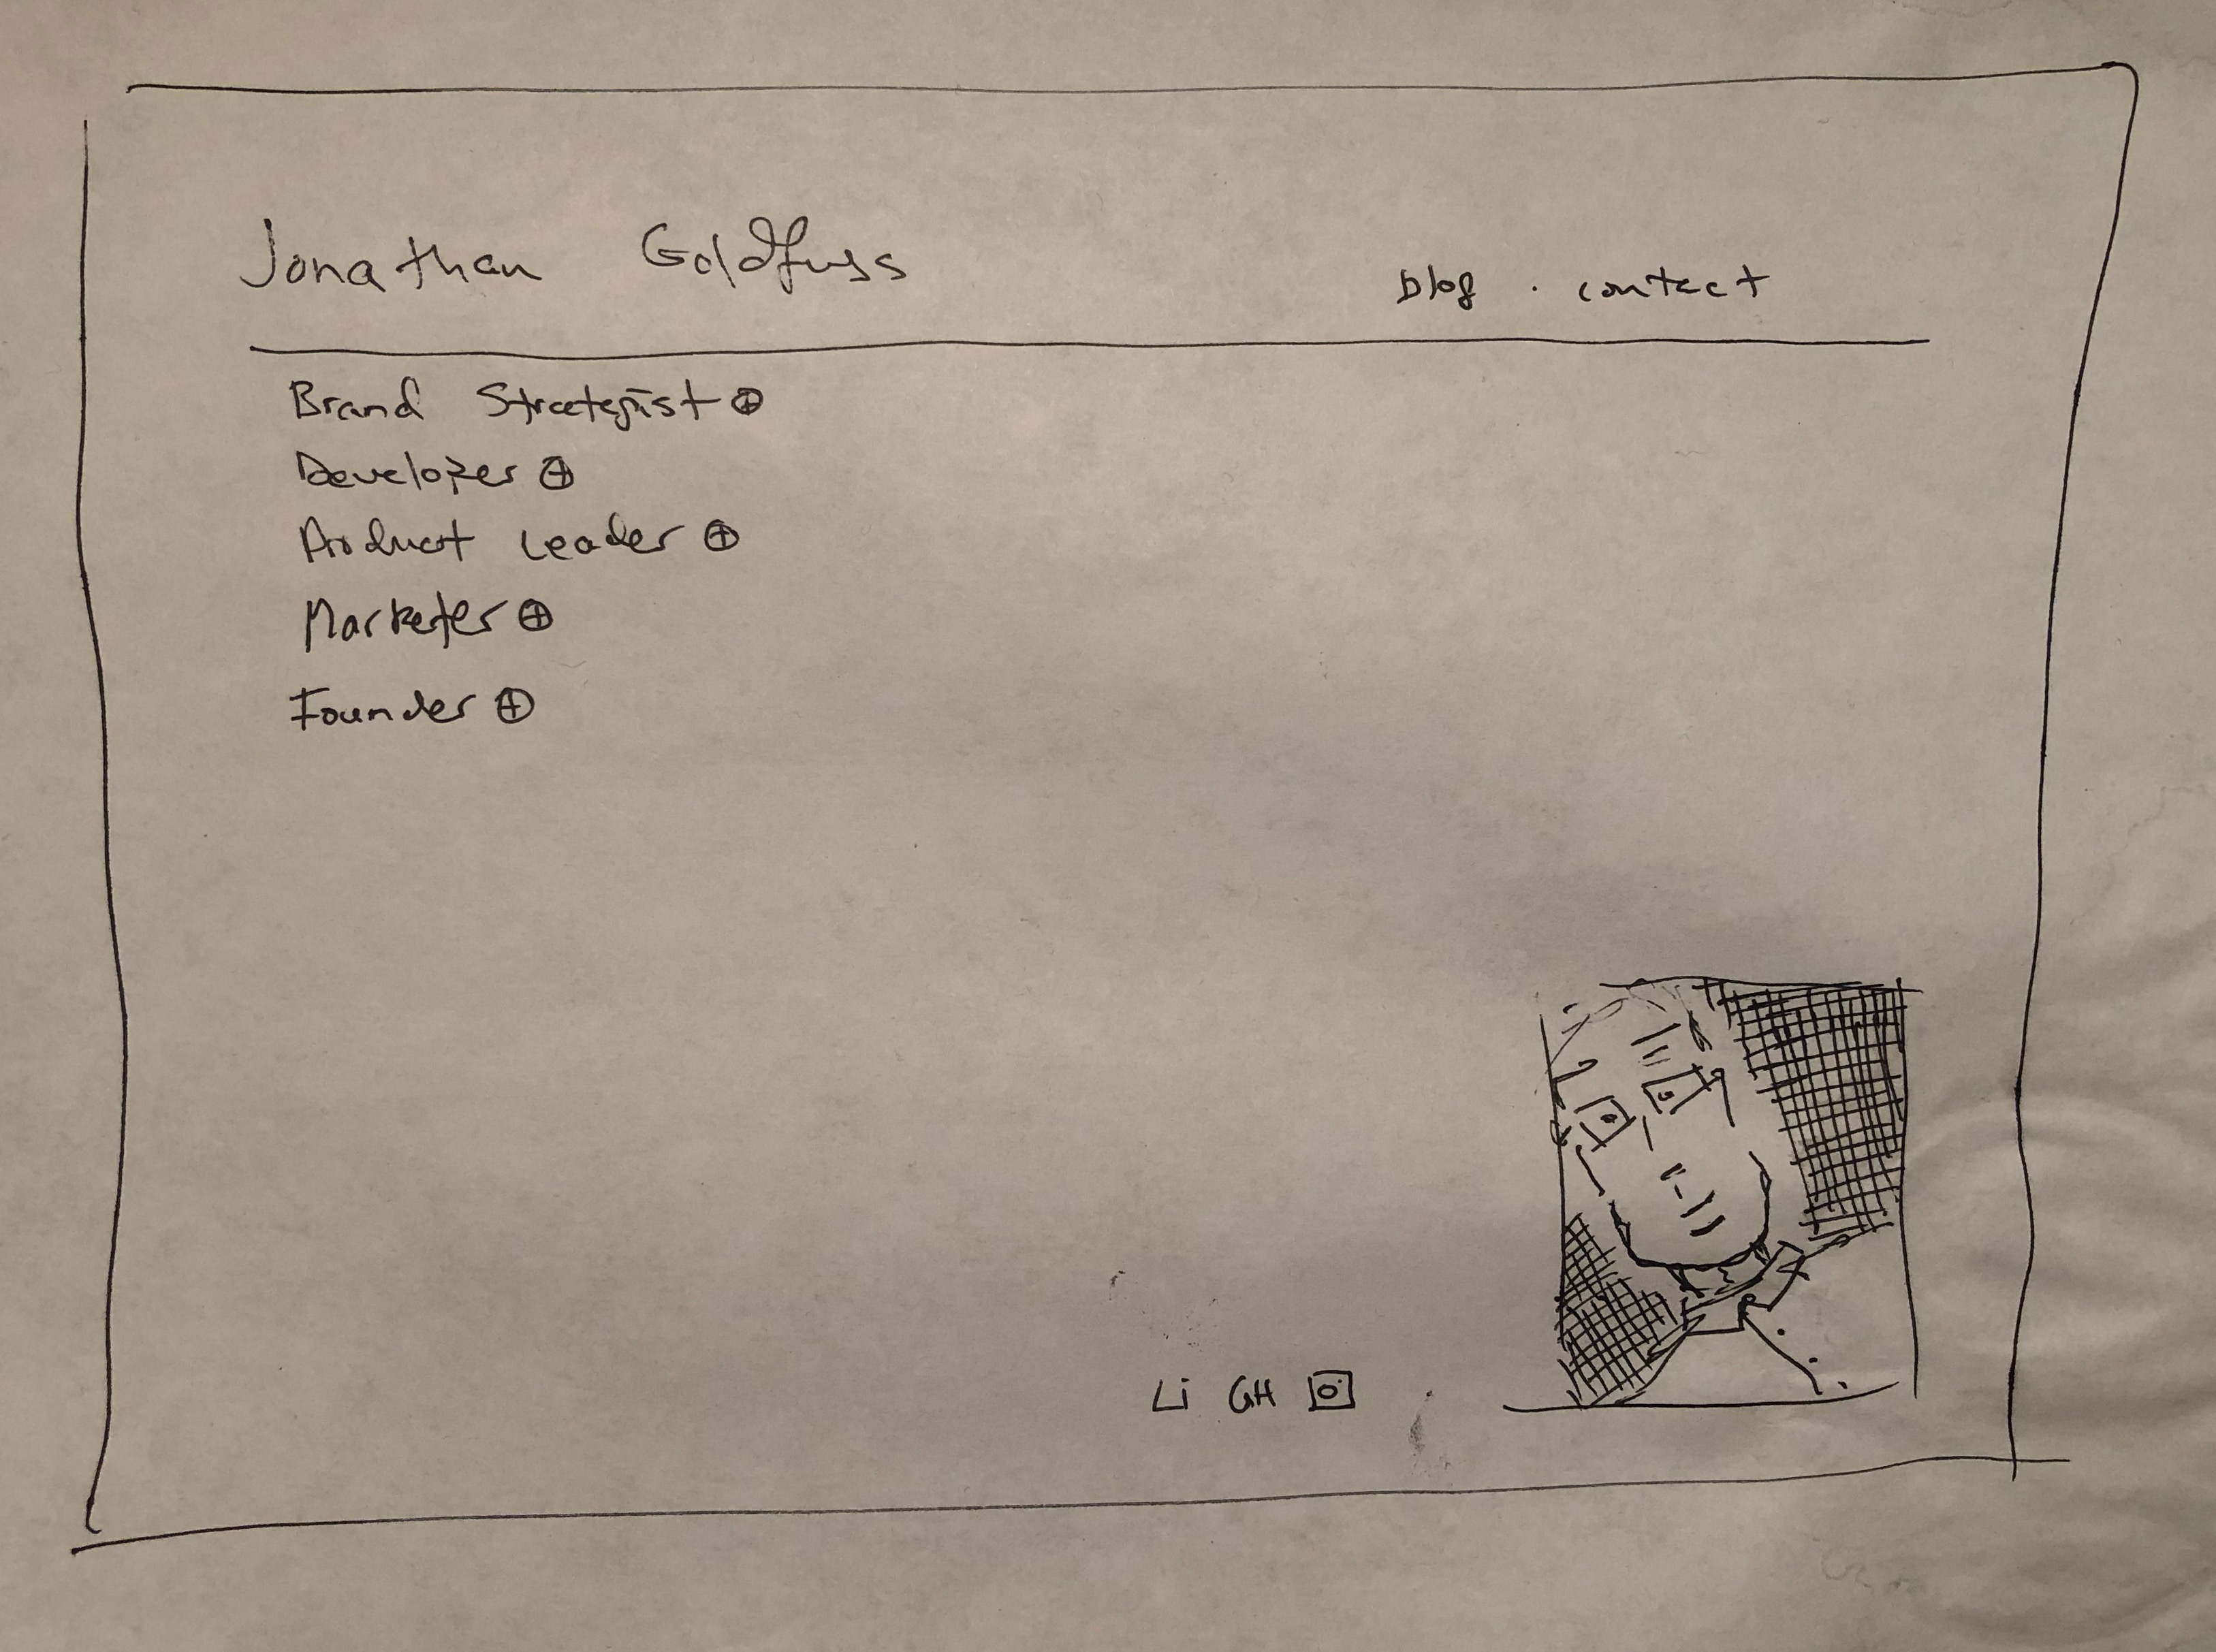 Jonathan Goldfuss
blog · contact
Brand Strategist ⊕
Developer ⊕
Product Leader ⊕
Marketer ⊕
Founder ⊕
Li GH